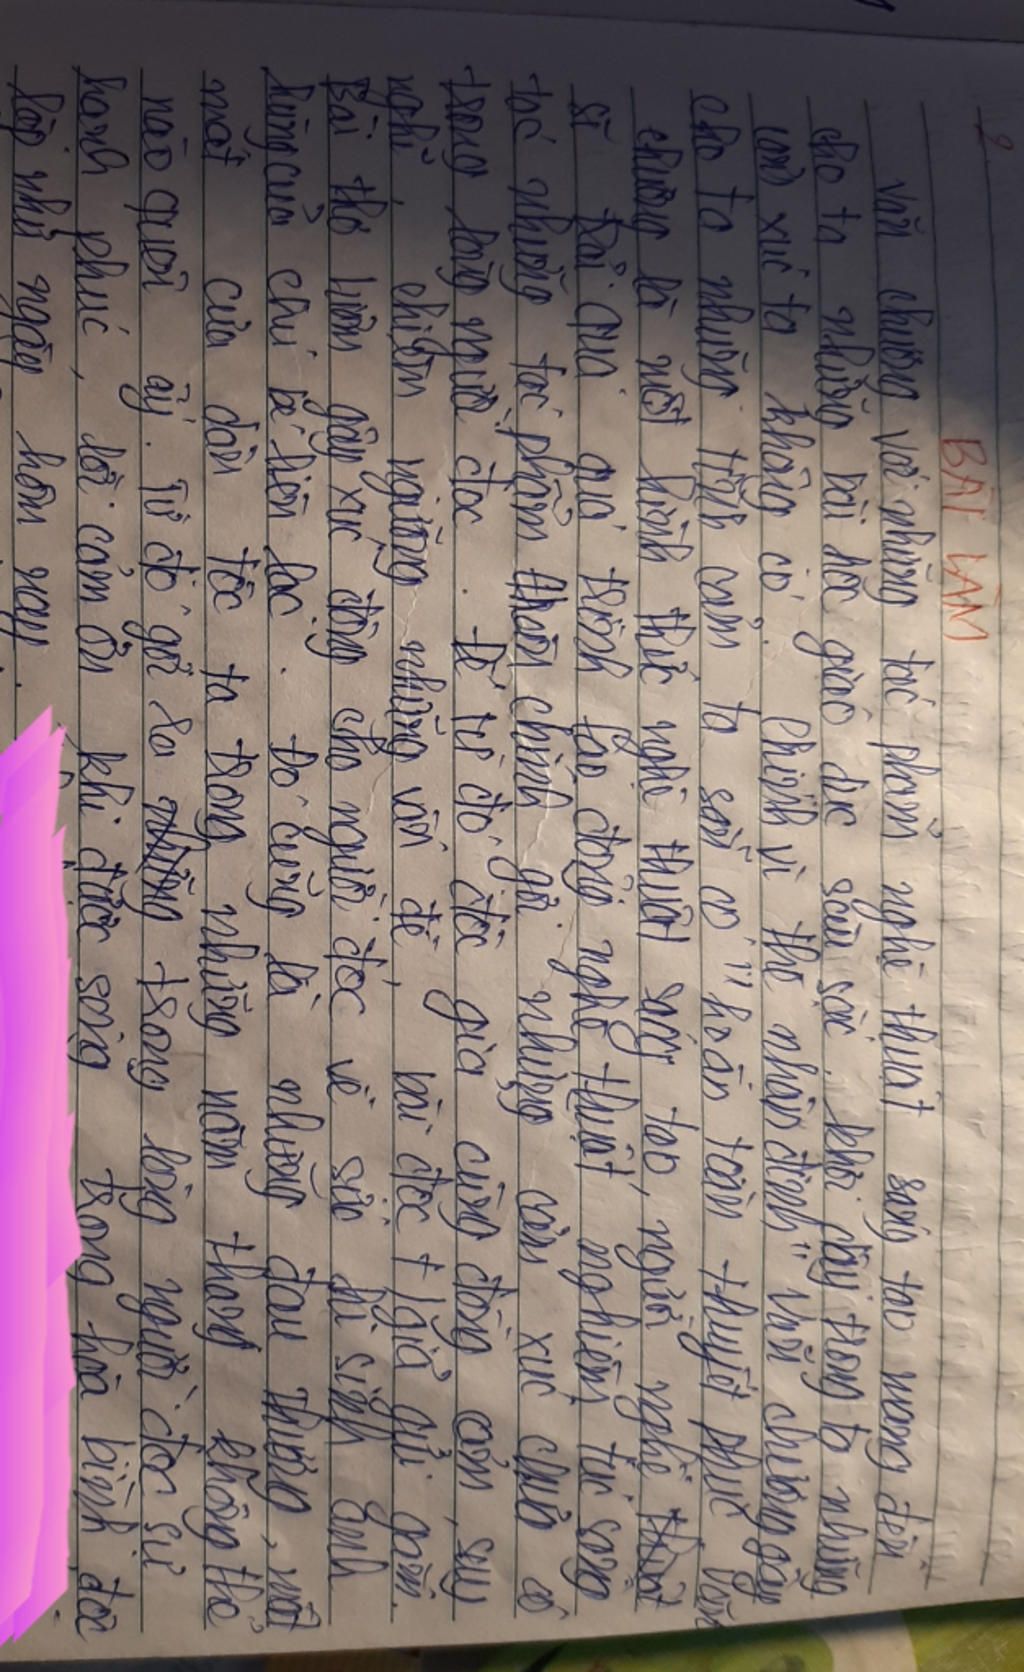 BÀI LÀM
Văn chương với những tác phẩm nghệ thuật sáng tạo mang đến
cho ta những bài học giáo dục sâu sắc, khơi dậy trong ta những
cảm xúc ta không có. Chính vì thế nhận định "Văn chương gây
cho ta những tình cảm ta sẵn có" hoàn toàn thuyết phục. Văn
chương là một hình thức nghệ thuật sáng tạo, người nghệ
sĩ trải qua quá trình lao động nghệ thuật nghiêm túc sáng
tác những tác phẩm thẩm chính gửi những cảm xúc chưa có
trong lòng người đọc. Để từ đó độc giả cùng đồng cảm, suy
nghĩ, chiêm ngưỡng những vấn đề, bài đọc t/giả gửi gắm.
Bài thơ Lượm gây xúc động cho người đọc về sự hi sinh anh
hùng của chú bé liên lạc. Đó cũng là những đau thương, mất
mát của dân tộc ta trong những năm tháng không thể
nào quên ấy. Từ đó gợi ra trong lòng người đọc sự
hạnh phúc, lời cảm ơn khi được sống trong hòa bình, độc
lập như ngày hôm nay.